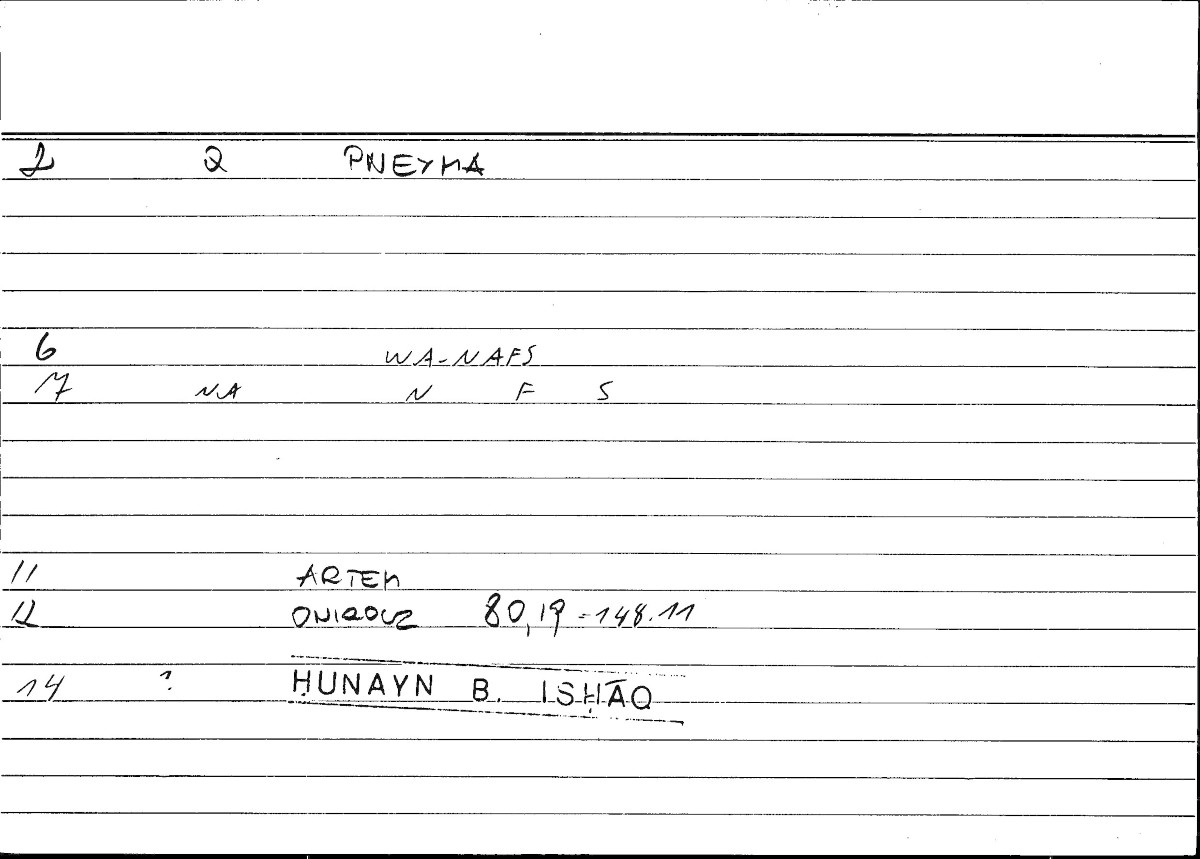 2 Q PNEYMA
6 WA-NAFS
7 NA N F S
11 ARTEM
12 ONIROCR 80,19 = 148.11
14 ? ḤUNAYN B. ISḤĀQ